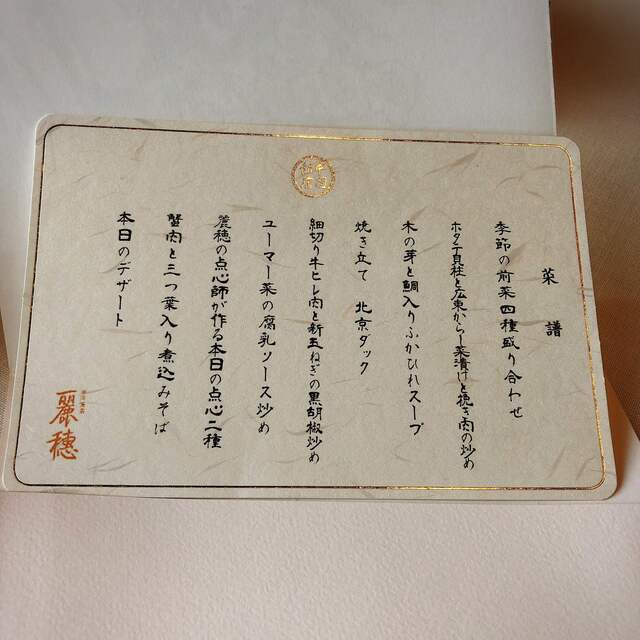 菜譜
季節の前菜四種盛り合わせ
ホタテ貝柱と広東からし菜漬けと挽き肉の炒め
木の芽と鯛入りふかひれスープ
焼き立て 北京ダック
細切り牛ヒレ肉と新玉ねぎの黒胡椒炒め
ユーマー菜の腐乳ソース炒め
麗穂の点心師が作る本日の点心二種
蟹肉と三つ葉入り煮込みそば
本日のデザート
麗穂